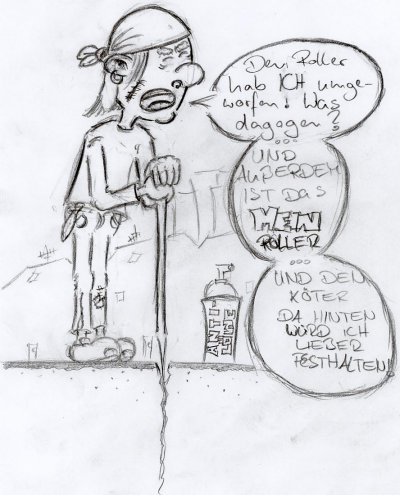 Den Roller
hab ICH umge-
worfen! Was
dagegen?
...
UND
AUßERDEM
IST DAS
MEIN
ROLLER
...
UND DEN
KÖTER
DA HINTEN
WÜRD ICH
LIEBER
FESTHALTEN!
ANTI